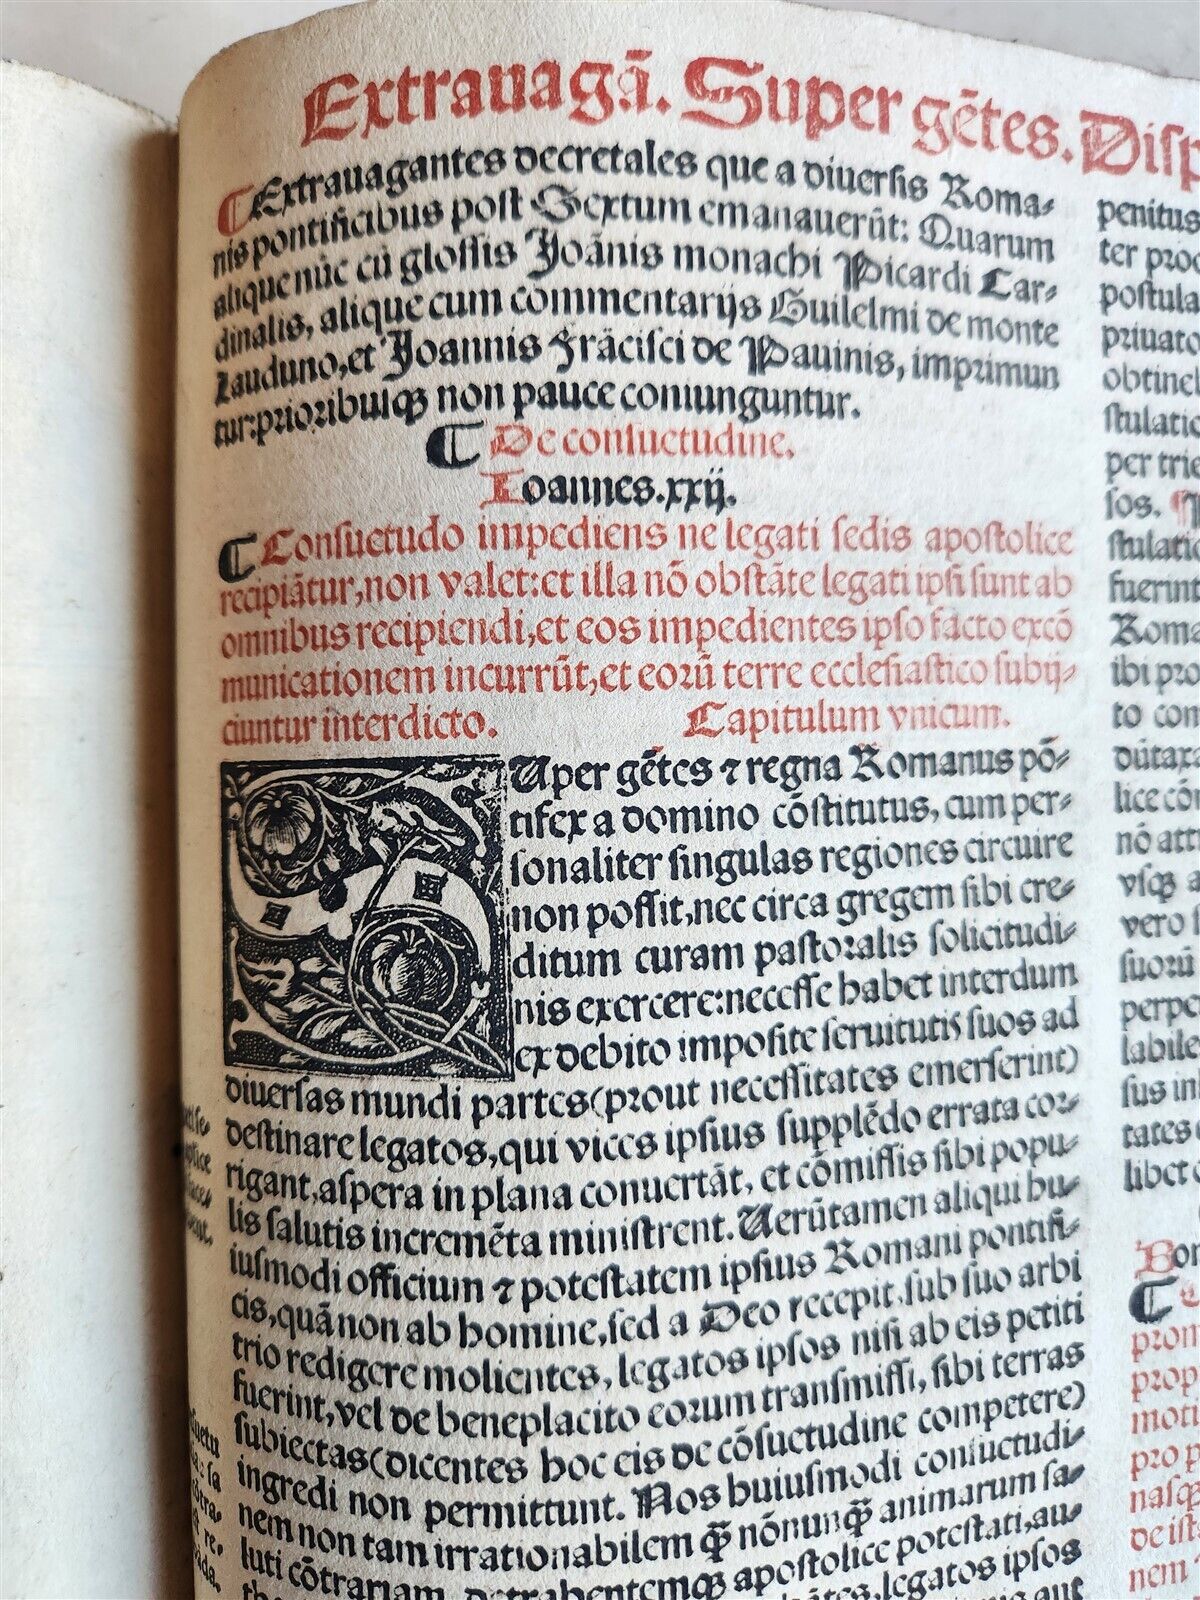 Extrauagā. Super gētes. Disp
Extrauagantes decretales que a diuersis Roma⸗
nis pontificibus post Sextum emanauerūt: Quarum
alique nūc cū glossis Joānis monachi Picardi Car⸗
dinalis, alique cum commentarijs Guilelmi de monte
Lauduno, et Joannis Frācisci de Pauinis, imprimun
tur: prioribusqꝫ non pauce coniunguntur.
De consuetudine.
Ioannes.xxij.
Consuetudo impediens ne legati sedis apostolice
recipiātur, non valet: et illa nō obstāte legati ipsi sunt ab
omnibus recipiendi, et eos impedientes ipso facto excō
municationem incurrūt, et eorū terre ecclesiastico subij⸗
ciuntur interdicto. Capitulum vnicum.
SUper gētes ⁊ regna Romanus pō⸗
tifex a domino cōstitutus, cum per⸗
sonaliter singulas regiones circuire
non possit, nec circa gregem sibi cre⸗
ditum curam pastoralis solicitudi⸗
nis exercere: necesse habet interdum
ex debito imposite seruitutis suos ad
diuersas mundi partes (prout necessitates emerserint)
destinare legatos, qui vices ipsius supplēdo errata cor⸗
rigant, aspera in plana conuertāt, et cōmissis sibi popu⸗
lis salutis incremēta ministrent. Uerūtamen aliqui hu⸗
iusmodi officium ⁊ potestatem ipsius Romani pontifi⸗
cis, quā non ab homine, sed a Deo recepit, sub suo arbi
trio redigere molientes, legatos ipsos nisi ab eis petiti
fuerint, vel de beneplacito eorum transmissi, sibi terras
subiectas (dicentes hoc eis de cōsuetudine competere)
ingredi non permittunt. Nos huiusmodi consuetudi⸗
nem non tam irrationabilem qꝫ̄ nōnunqꝫ̄ animarum sa⸗
luti cōtrariam, detrahentemqꝫ apostolice potestati, au⸗
legatos ipsos
penitus
ter proc
postula
priuato
obtinel
stulatic
per trie
sos.
stulatic
fuerint
Roma
ibi pro
to con
dūtaxa
lice cō
nō attr
vsqꝫ a
vero
suorū
perpe
labile
sus in
tates
libet
Bon
prom
prop
motu
pro p
nasqꝫ
de ist
nem